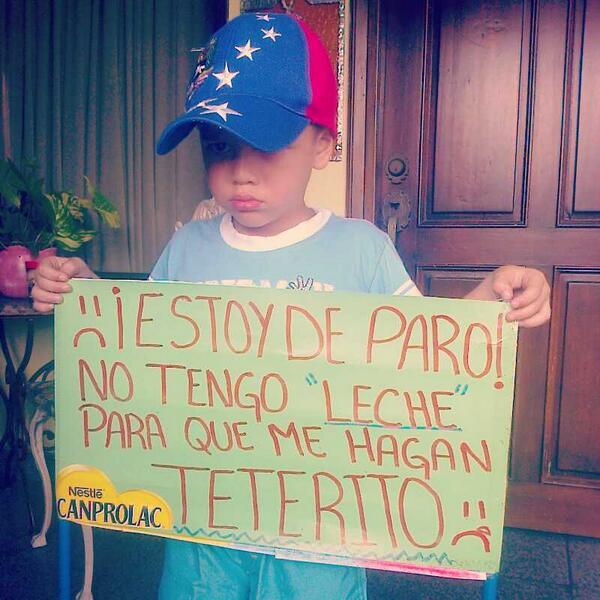 ¡ESTOY DE PARO!
NO TENGO "LECHE"
PARA QUE ME HAGAN
TETERITO
Nestlé
CANPROLAC